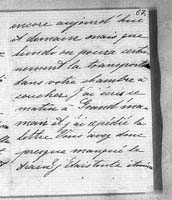 67.
encore aujourd'hui
et demain mais que
lundi on pourra certai-
nement la transporter
dans votre chambre à
coucher. J'ai écris ce
matin à Grand'ma-
man et j'ai expédié la
lettre. Vous avez donc
presque manqué le
train, j'étais toute